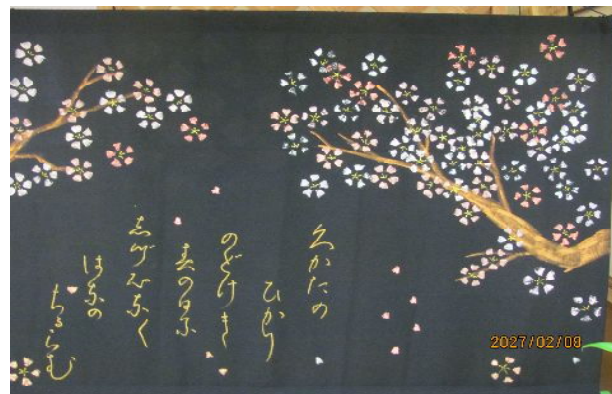 久かたの
ひかり
のどけき
春の日尓
志づ心奈く
は奈の
ちるらむ
2027/02/08